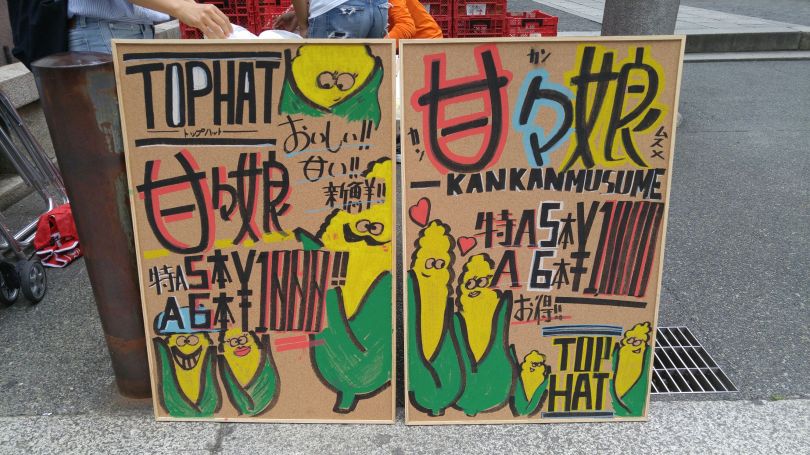 TOPHAT
トップハット
おいしい!!
甘い!!
新鮮!!
甘々娘
特A5本¥
A6本¥1,000!!
カン カン ムスメ
甘々娘
KANKANMUSUME
特A5本¥
A6本¥1,000
お得!!
TOP
HAT